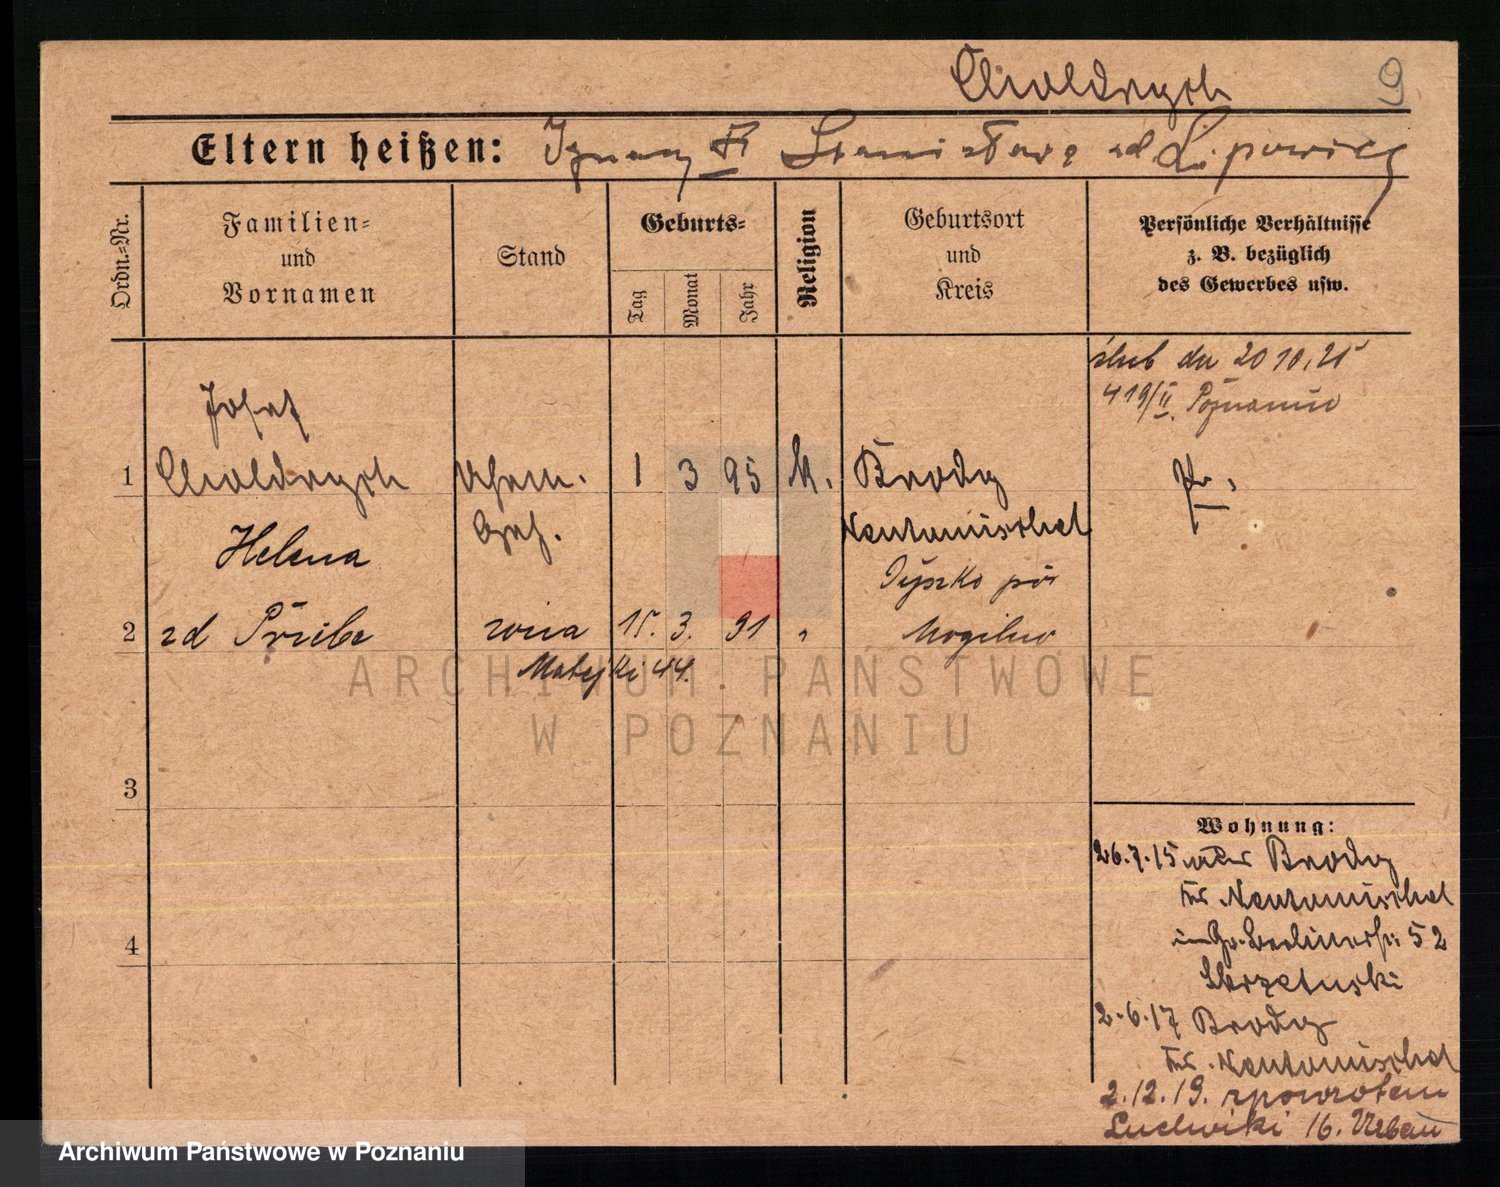 Choldrych 9
Eltern heißen: Ignacy & Stanisława zd Lipowicz
Ordn.-Nr.
Familien-
und
Vornamen
Stand
Geburts-
Tag
Monat
Jahr
Religion
Geburtsort
und
Kreis
Persönliche Verhältnisse
z. B. bezüglich
des Gewerbes usw.
ślub dn 20 10. 25
419/II. Poznaniu
Josef
1 Choldrych 1 3 95 K. Brody
Geh. Neutomischel
Helena
2 zd Priebe żona 15. 3. 91 " Mogilno
Matejki 44.
3
4
Wohnung:
26.7.15 Brody
Neutomischel
52
Skrzetuski
2.6.17 Brody
Neutomischel
2.12.19. zpowrotem
Ludwiki 16.
ARCHIWUM PAŃSTWOWE
W POZNANIU
Archiwum Państwowe w Poznaniu